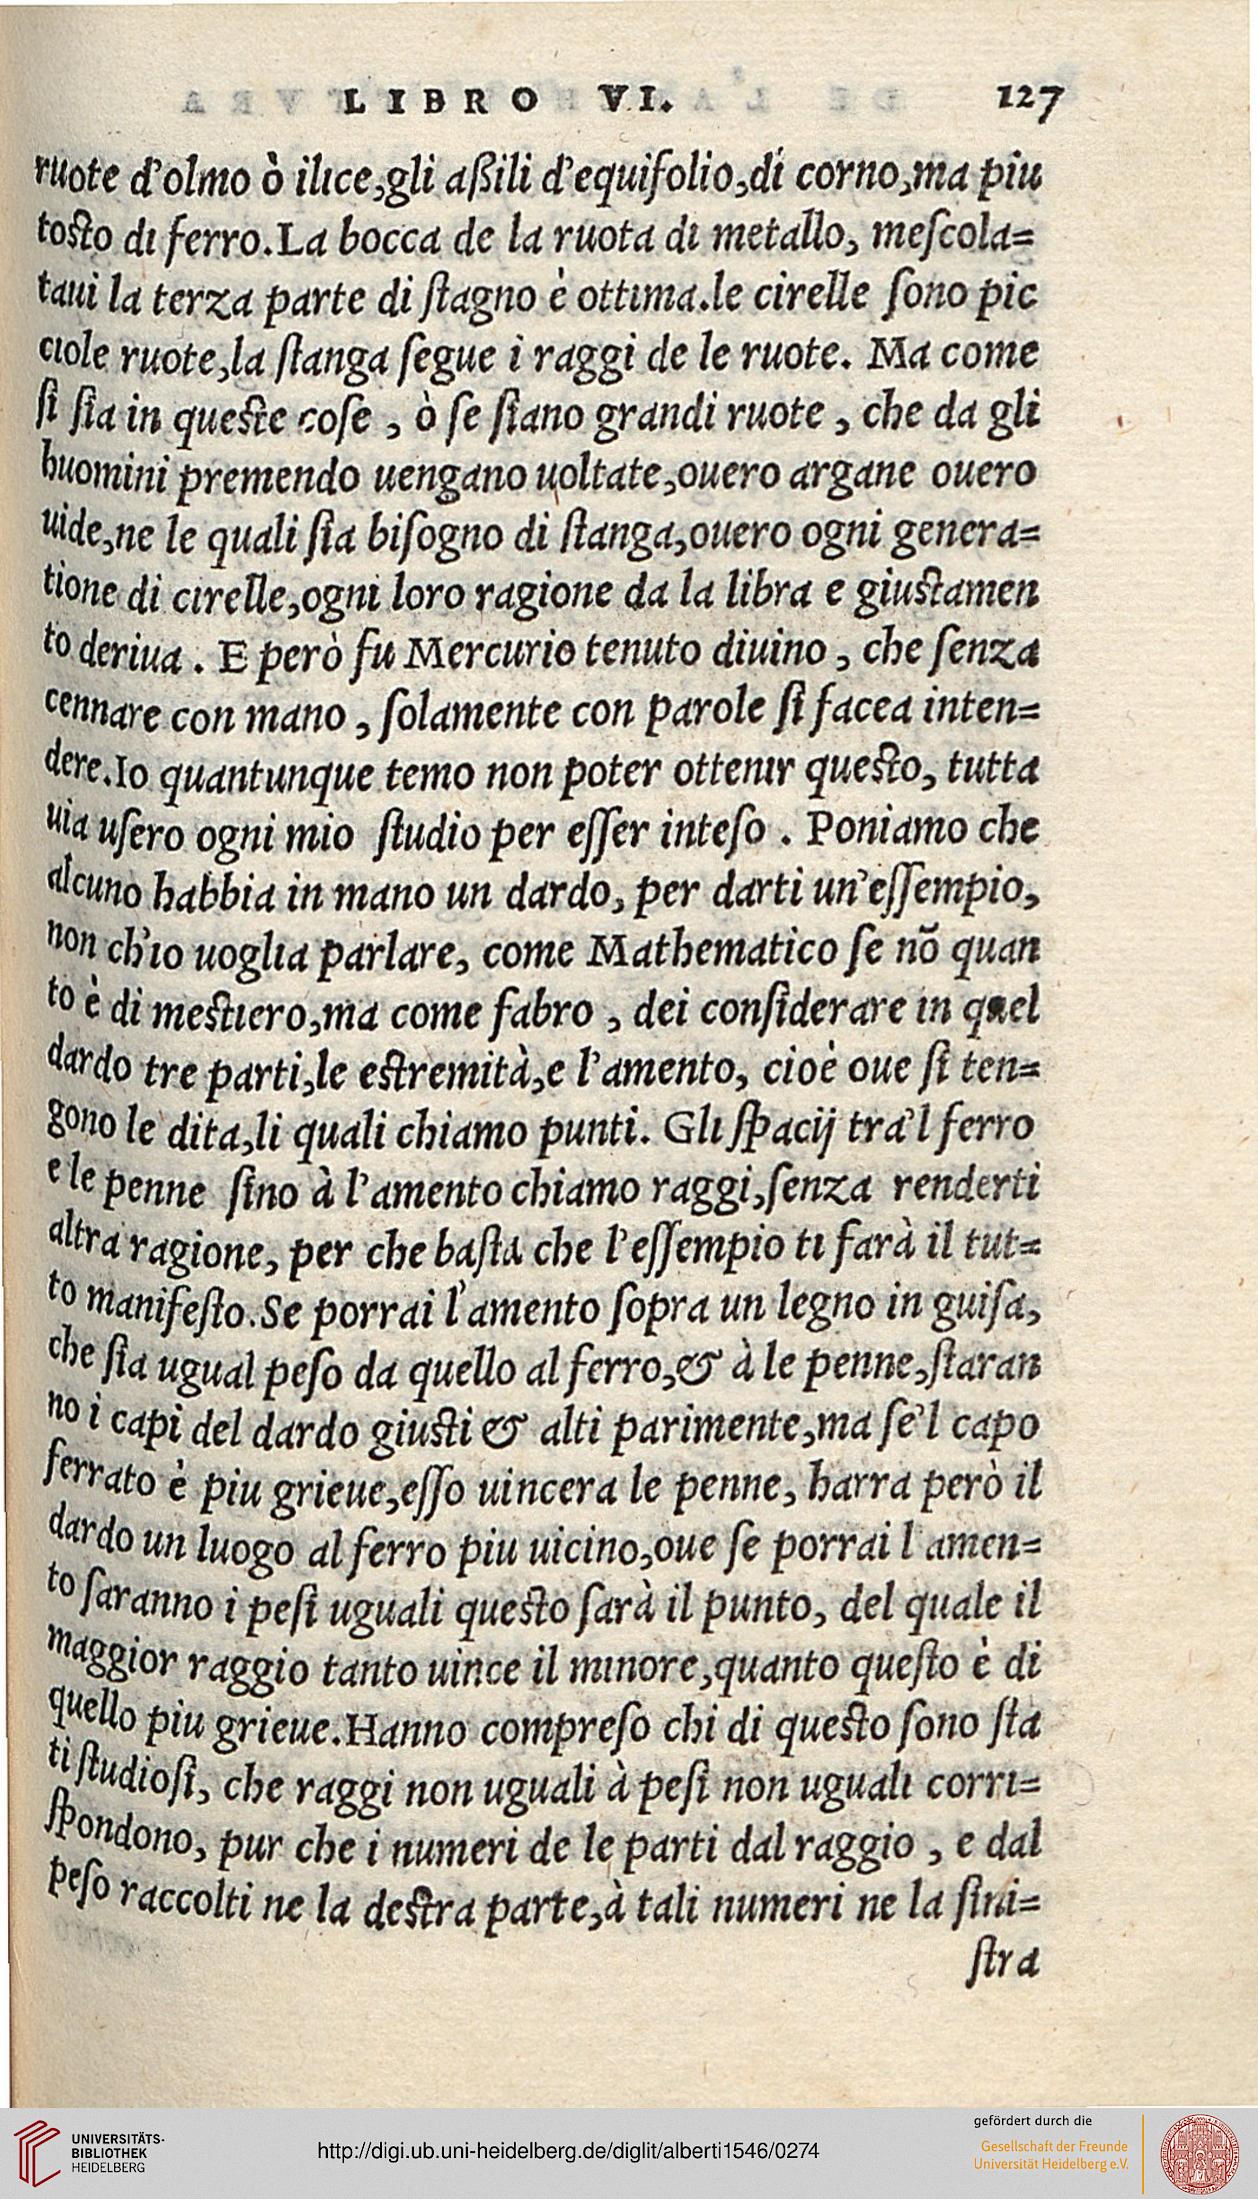 LIBRO VI. 127
ruote d'olmo ò ilice,gli aßili d'equifolio,di corno,ma piu
tosto di ferro.La bocca de la ruota di metallo, meſcola=
taui la terza parte di ſtagno è ottima.le cirelle ſono pic
ciole ruote,la ſtanga ſegue i raggi de le ruote. Ma come
ſi ſia in queste coſe , ò ſe ſiano grandi ruote , che da gli
huomini premendo uengano uoltate,ouero argane ouero
uide,ne le quali ſia biſogno di ſtanga,ouero ogni genera=
tione di cirelle,ogni loro ragione da la libra e giustamen
to deriua . E però fu Mercurio tenuto diuino , che ſenza
cennare con mano , ſolamente con parole ſi facea inten=
dere.Io quantunque temo non poter ottenir questo, tutta
uia uſero ogni mio ſtudio per eſſer inteſo . Poniamo che
alcuno habbia in mano un dardo, per darti un'eſſempio,
non ch'io uoglia parlare, come Mathematico ſe nõ quan
to è di mestiero,ma come fabro , dei conſiderare in quel
dardo tre parti,le estremità,e l'amento, cioè oue ſi ten=
gono le dita,li quali chiamo punti. Gli ſpacij tra'l ferro
e le penne ſino à l'amento chiamo raggi,ſenza renderti
altra ragione, per che baſta che l'eſſempio ti farà il tut=
to manifeſto.Se porrai l'amento ſopra un legno in guiſa,
che ſia ugual peſo da quello al ferro,& à le penne,ſtaran
no i capi del dardo giusti & alti parimente,ma ſe'l capo
ferrato è piu grieue,eſſo uincera le penne, harra però il
dardo un luogo al ferro piu uicino,oue ſe porrai l amen=
to ſaranno i peſi uguali questo ſarà il punto, del quale il
maggior raggio tanto uince il minore,quanto queſto è di
quello piu grieue.Hanno compreſo chi di questo ſono ſta
ti ſtudioſi, che raggi non uguali à peſi non uguali corri=
ſpondono, pur che i numeri de le parti dal raggio , e dal
peſo raccolti ne la destra parte,à tali numeri ne la ſini=
ſtra
UNIVERSITÄTS-
BIBLIOTHEK
HEIDELBERG
http://digi.ub.uni-heidelberg.de/diglit/alberti1546/0274
gefördert durch die
Gesellschaft der Freunde
Universität Heidelberg e.V.